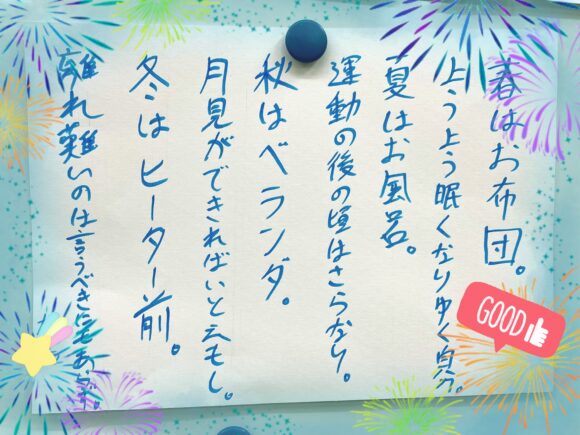 春はお布団。
ようよう眠くなりゆく自分。
夏はお風呂。
運動の後の頃はさらなり。
秋はベランダ。
月見ができればいと云もし。
冬はヒーター前。
離れ難いのは言うべきにもあらず。
GOOD